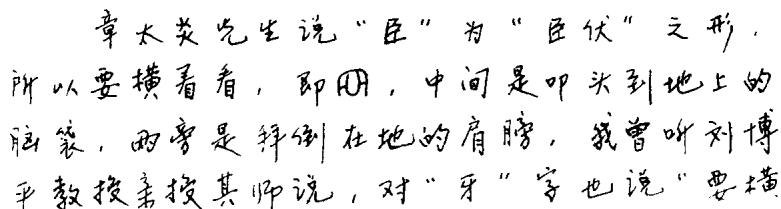 章太炎先生说“臣”为“臣伏”之形，
所以要横着看，即，中间是叩头到地上的
脑袋，两旁是拜倒在地的肩膀，我曾听刘博
平教授亲授其师说，对“牙”字也说“要横